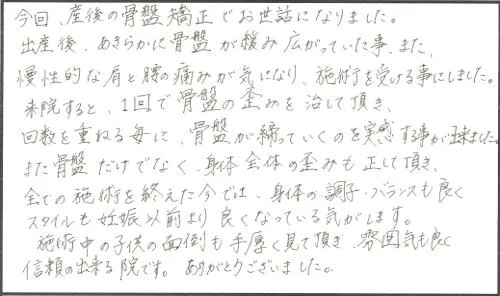 今回、産後の骨盤矯正でお世話になりました。
出産後、あきらかに骨盤が緩み広がっていた事、また、
慢性的な肩と腰の痛みが気になり、施術を受ける事にしました。
来院すると、1回で骨盤の歪みを治して頂き、
回数を重ねる毎に、骨盤が締っていくのを実感する事が出来ました
また骨盤だけでなく、身体全体の歪みも正して頂き、
全ての施術を終えた今では、身体の調子・バランスも良く
スタイルも妊娠以前より良くなっている気がします。
施術中の子供の面倒も手厚く見て頂き、雰囲気も良く
信頼の出来る院です。ありがとうございました。